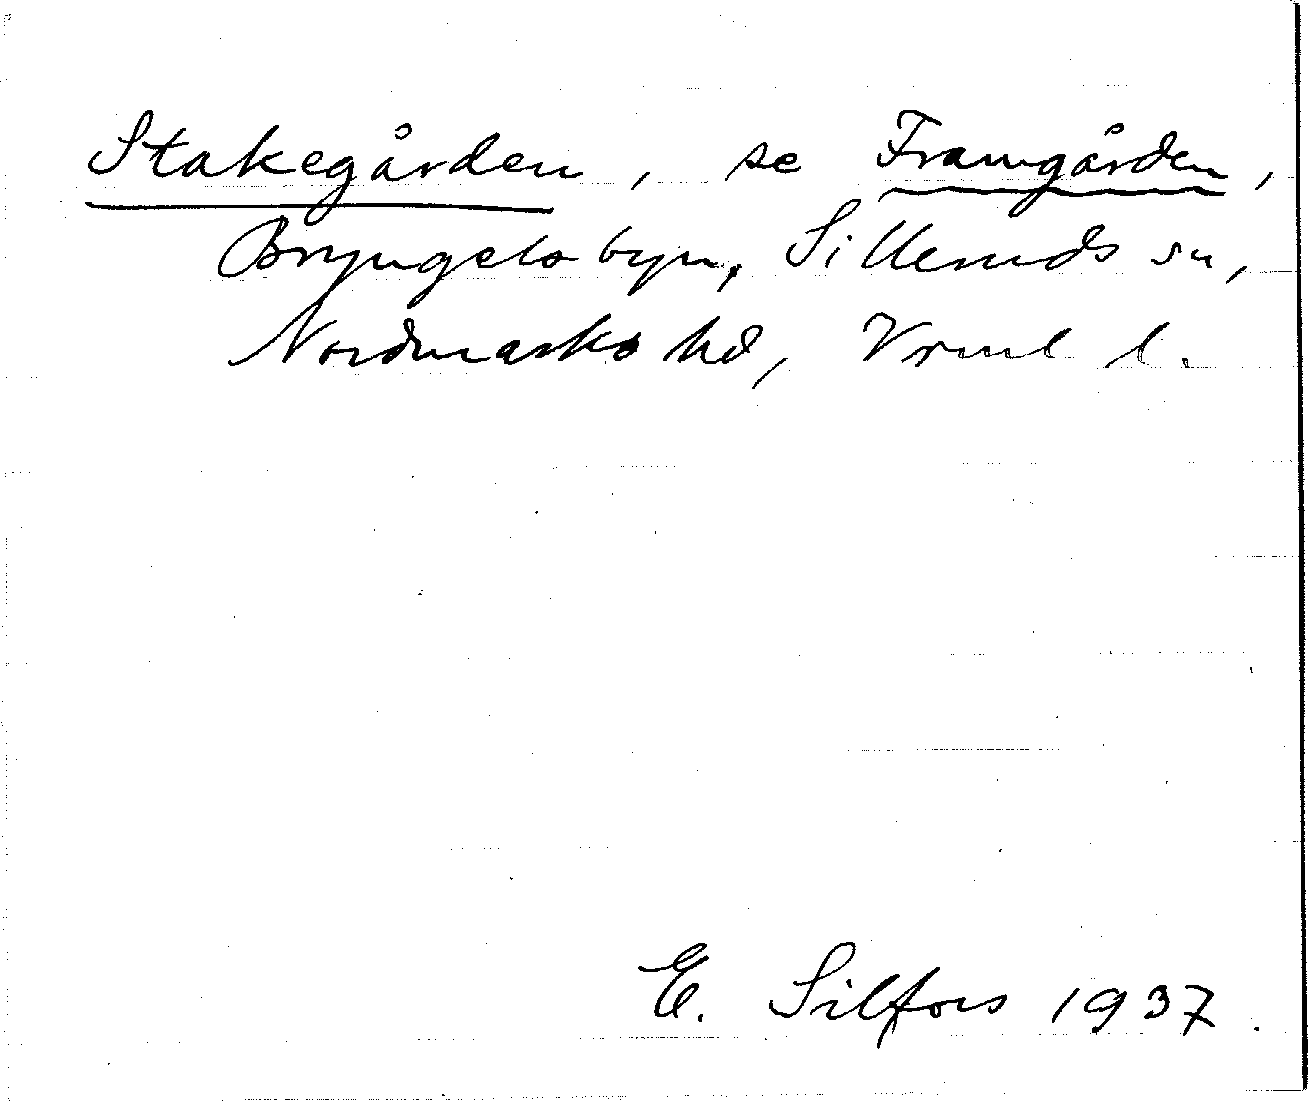 Stakegården, se Framgården,
Bryngelsbyn, Silleruds sn,
Nordmarks hd, Vrml l.
E. Silfors 1937.